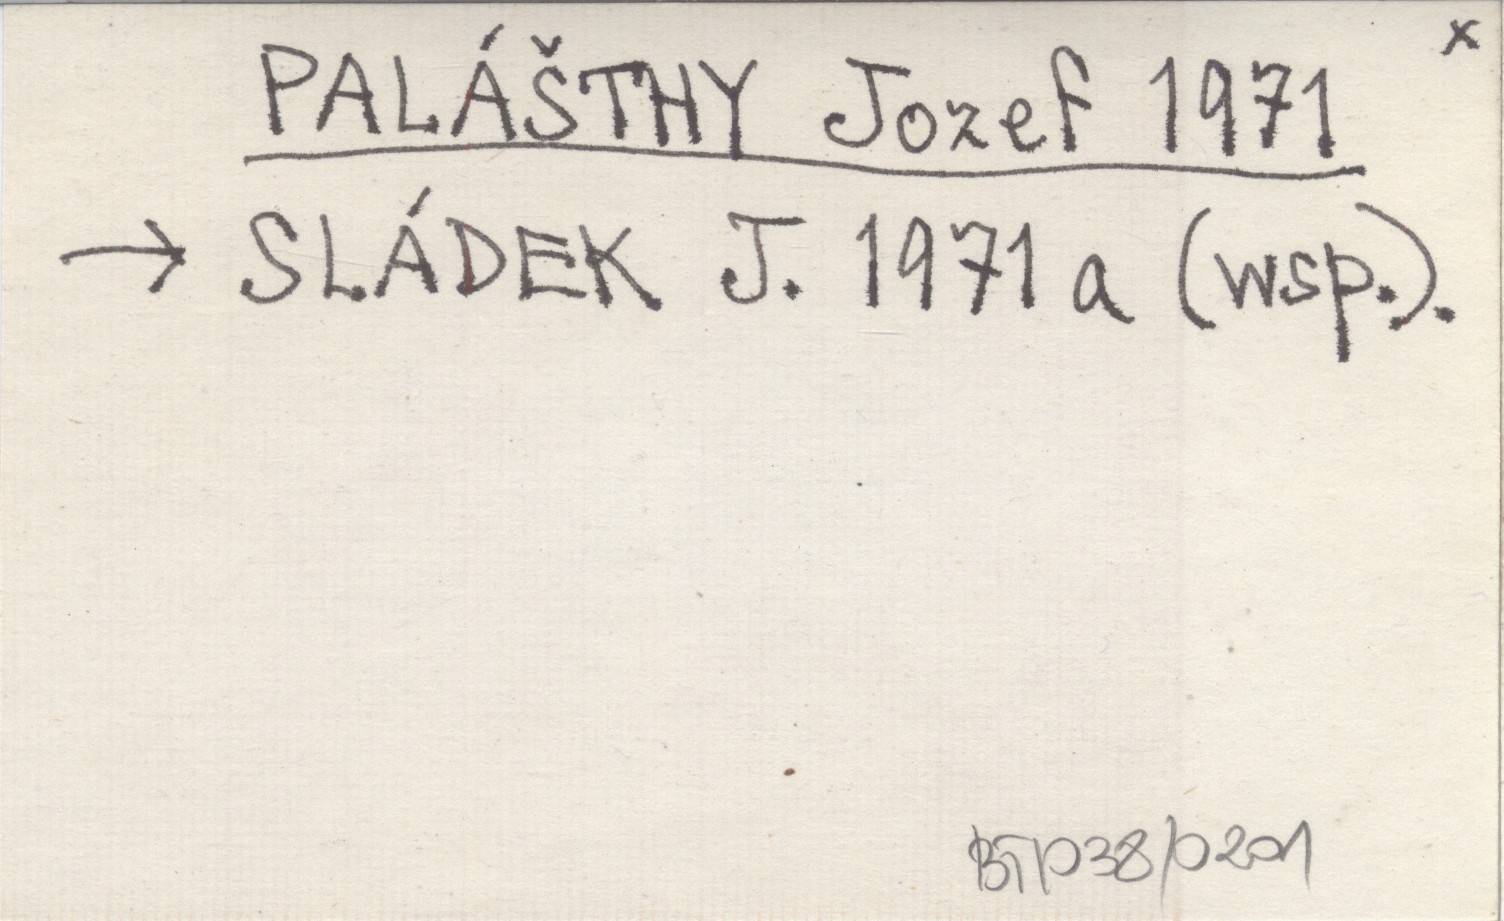 x
PALÁŠTHY Jozef 1971
→ SLÁDEK J. 1971 a (wsp.).
BT/038/0201